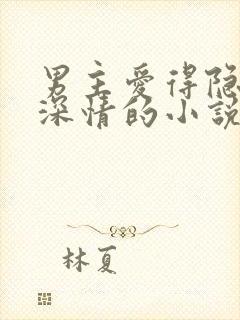 男主爱得隐
深情的小説
林夏